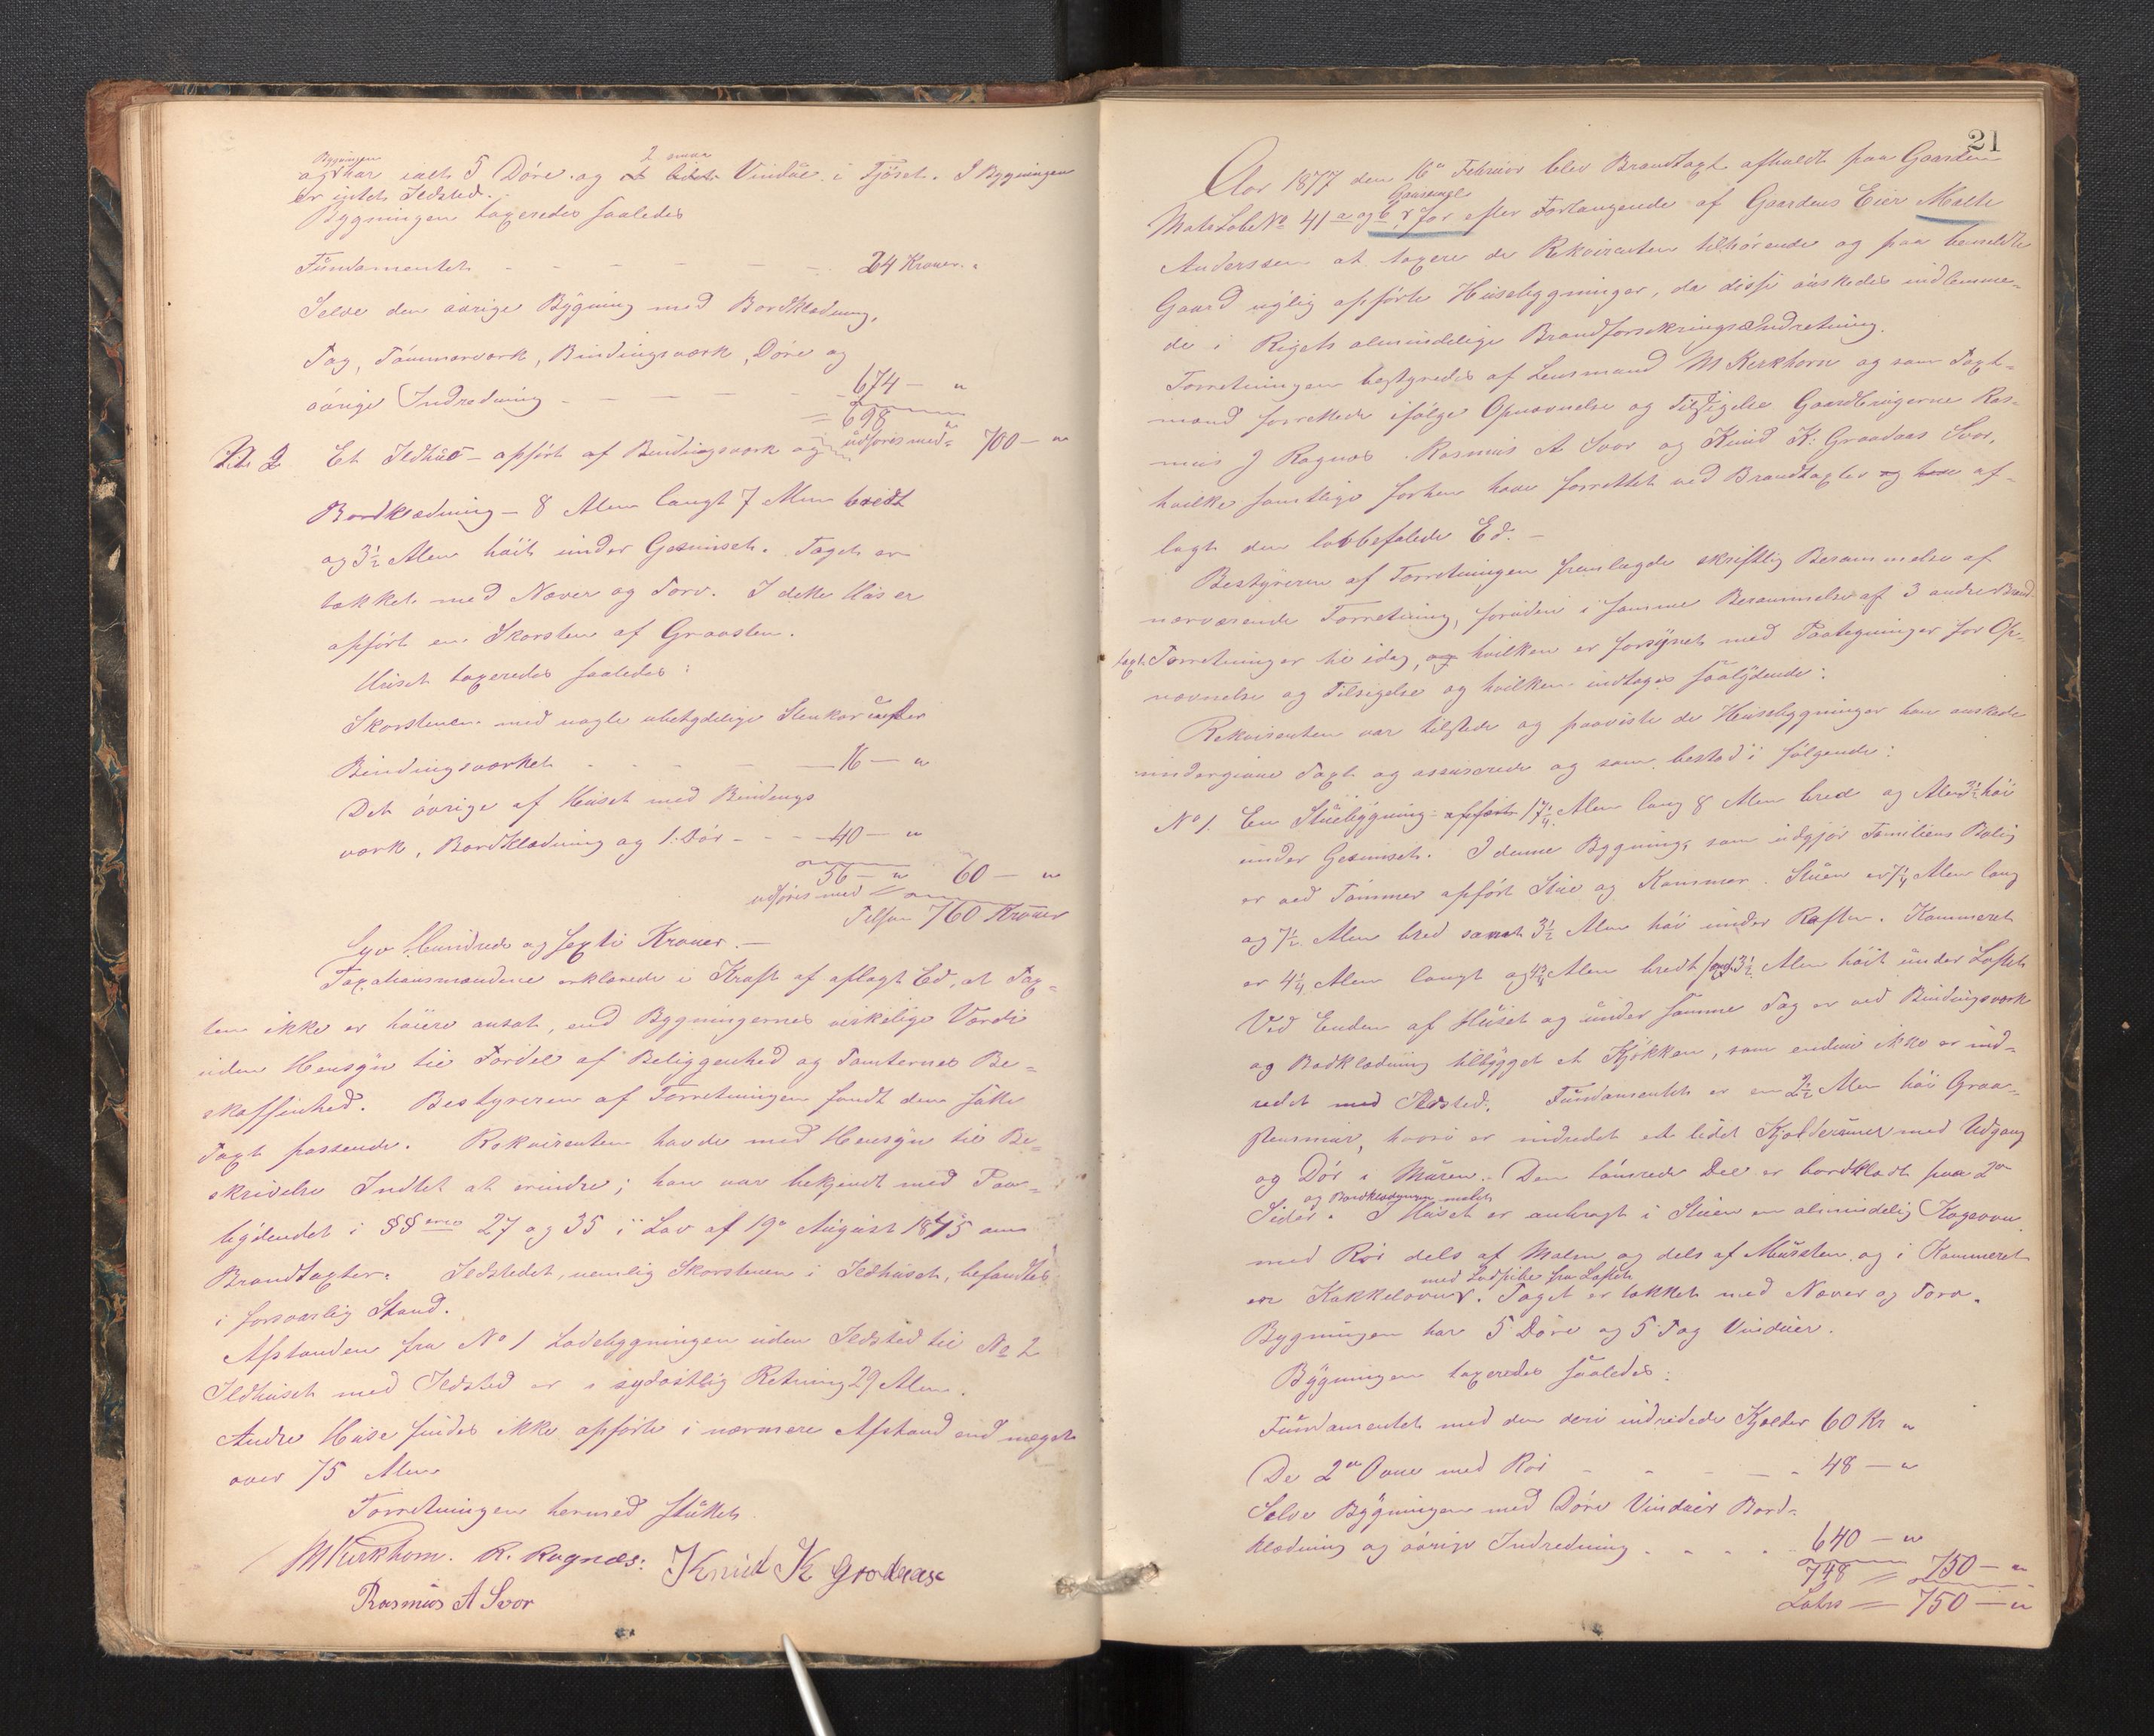 Bygningen
og har ialt 5 Döre og et lidet 2 smaa Vindue i Fjöset. I Bygningen
er intet Ildsted.
Bygningen taxeredes saaledes
Fundamentet - - - - - - 24 Kroner "
Selve den övrige Bygning med Bordklædning,
Tag, Tömmerværk, Bindingsværk, Döre og
övrige Indredning - - - - - 674 - "
= 698 "
udföres med = 700 - "
Lit. 2 Et Ildhus - opfört af Bindingsværk og
Bordklædning - 8 Alen langt 7 Alen bredt
og 3½ Alen höit under Gesimset. Taget er
tækket med Næver og Torv. I dette Hus er
opfört en Skorsten af Graasten.
Huset taxeredes saaledes:
Skorstenen med nogle ubetydelige Stenkar under
Bindingsværket - - - - 16 - "
Det övrige af Huset med Bindings
værk, Bordklædning og 1 Dör - - - 40 - "
56 - " 60 - "
udföres med =
Tilsam 760 Kroner
Syv Hundrede og sexti Kroner. -
Taxationsmændene erklærede i Kraft af aflagt Ed, at Tax-
ten ikke er höiere ansat, end Bygningernes virkelige Værdi
uden Hensyn til Fordel af Beliggenhed og Tomternes Be=
skaffenhed. Bestyreren af Forretningen fandt den satte
Taxt passende. Rekvirenten havde med Hensyn til Be=
skrivelse Indtet at erindre; han var bekjendt med Paa=
bydendet i §§erne 27 og 35 i Lov af 19de August 1845 om
Brandtaxter. Ildstedet, nemlig Skorstenen i Ildhuset, befandtes
i forsvarlig Stand.
Afstanden fra No 1 Ladebygningen uden Ildsted til No 2
Ildhuset med Ildsted er i sydöstlig Retning 29 Alen.
Andre Huse findes ikke opförte i nærmere Afstand end noget
over 75 Alen
Forretningen hermed sluttet.
M Kirkhorn. R. Ragnæs: Knud K Grodaas
Rasmus A Svor
21
Aar 1877 den 16de Februar blev Brandtaxt afholdt paa Gaarden
Gausemel
Matr. Löbe No 41 a og b for efter Forlangende af Gaardens Eier Malte
Anderssen at taxere de Rekvirenten tilhörende og paa bemeldte
Gaard nylig opförte Husebygninger, da disse önskedes indlemme-
de i Rigets almindelige Brandforsikrings Indretning.
Forretningen bestyredes af Lensmand M Kirkhorn og som Taxt-
mænd forrettede ifölge Opnævnelse og Tilsigelse Gaardbrugerne Ras-
mus J Ragnæs Rasmus A Svor og Knud K: Graadaas Svor,
hvilke samtlige forhen have forrettet ved Brandtaxter og have af-
lagt den lovbefalede Ed. -
Bestyreren af Forretningen fremlagde skriftlig Berammelse af
nærværende Forretning, foruden i samme Berammelse af 3 andre Brand-
taxt Forretninger til idag, og hvilken er forsynet med Paategninger for Op-
nævnelse og Tilsigelse og hvilken indtages saalydende:
Rekvirenten var tilstede og paaviste de Husebygninger han önskede
undergivne Taxt og assurerede og som bestod i fölgende:
No 1. En Stuebygning opfört 17¼ Alen lang 8 Alen bred og Alen 3½ höi
under Gesimset. I denne Bygning, som udgjör Familiens Bolig
er ved Tömmer opfört Stue og Kammer. Stuen er 7¼ Alen lang
og 7½ Alen bred samt 3½ Alen höi under Raften. Kammeret
er 4¼ Alen langt og 4¾ Alen bredt samt 3½ Alen höit under Loftet
Ved Enden af Huset og under samme Tag er ved Bindingsværk
og Bordklædning tilbygget et Kjökken, som endnu ikke er ind-
redet med Ildsted. Fundamentet er en 2½ Alen höi Graa-
stensmur, hvori er indredet et lidet Kjelderrum med Udgang
og Dör i Muren. Den tömrede Del er bordklædt paa 2de
og Bordklædningen malet
Sider. I Huset er anbragt i Stuen en almindelig Kogeovn
med Rör dels af Malm og dels af Mursten og i Kammeret
med Ludpibe fra Loftet
en Kakkelovn. Taget er tækket med Næver og Torv.
Bygningen har 5 Döre og 5 Fag Vinduer.
Bygningen taxeredes saaledes:
Fundamentet med den deri indredede Kjelder 60 Kr "
De 2de Ovne med Rör - - - - 48 - "
Selve Bygningen med Döre Vinduer Bord-
klædning og övrige Indredning - - - - 640 - "
748 = 750 - "
Latus = 750 - "